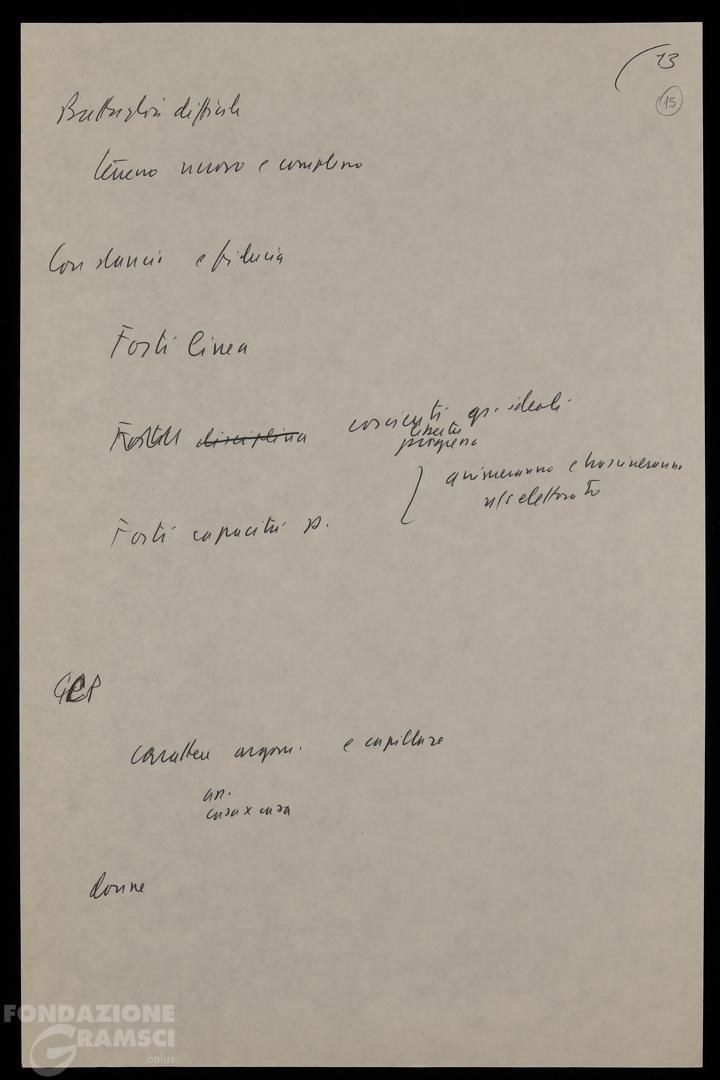 13
15
Battaglia difficile
terreno nuovo e complesso
Constanci e fiducia
Forti linea
Forti disciplina coscienti gr. ideali
libertà
progresso
animeranno e trascineranno
n/s elettorato
Forti capacità p.
GCP
carattere organ. e capillare
an.
casa x casa
donne
FONDAZIONE
GRAMSCI
onlus